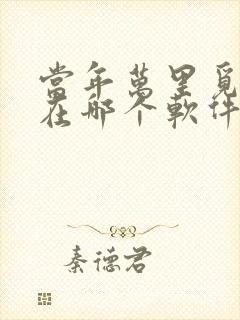 當年萬里覓
在那个軟件
秦德君